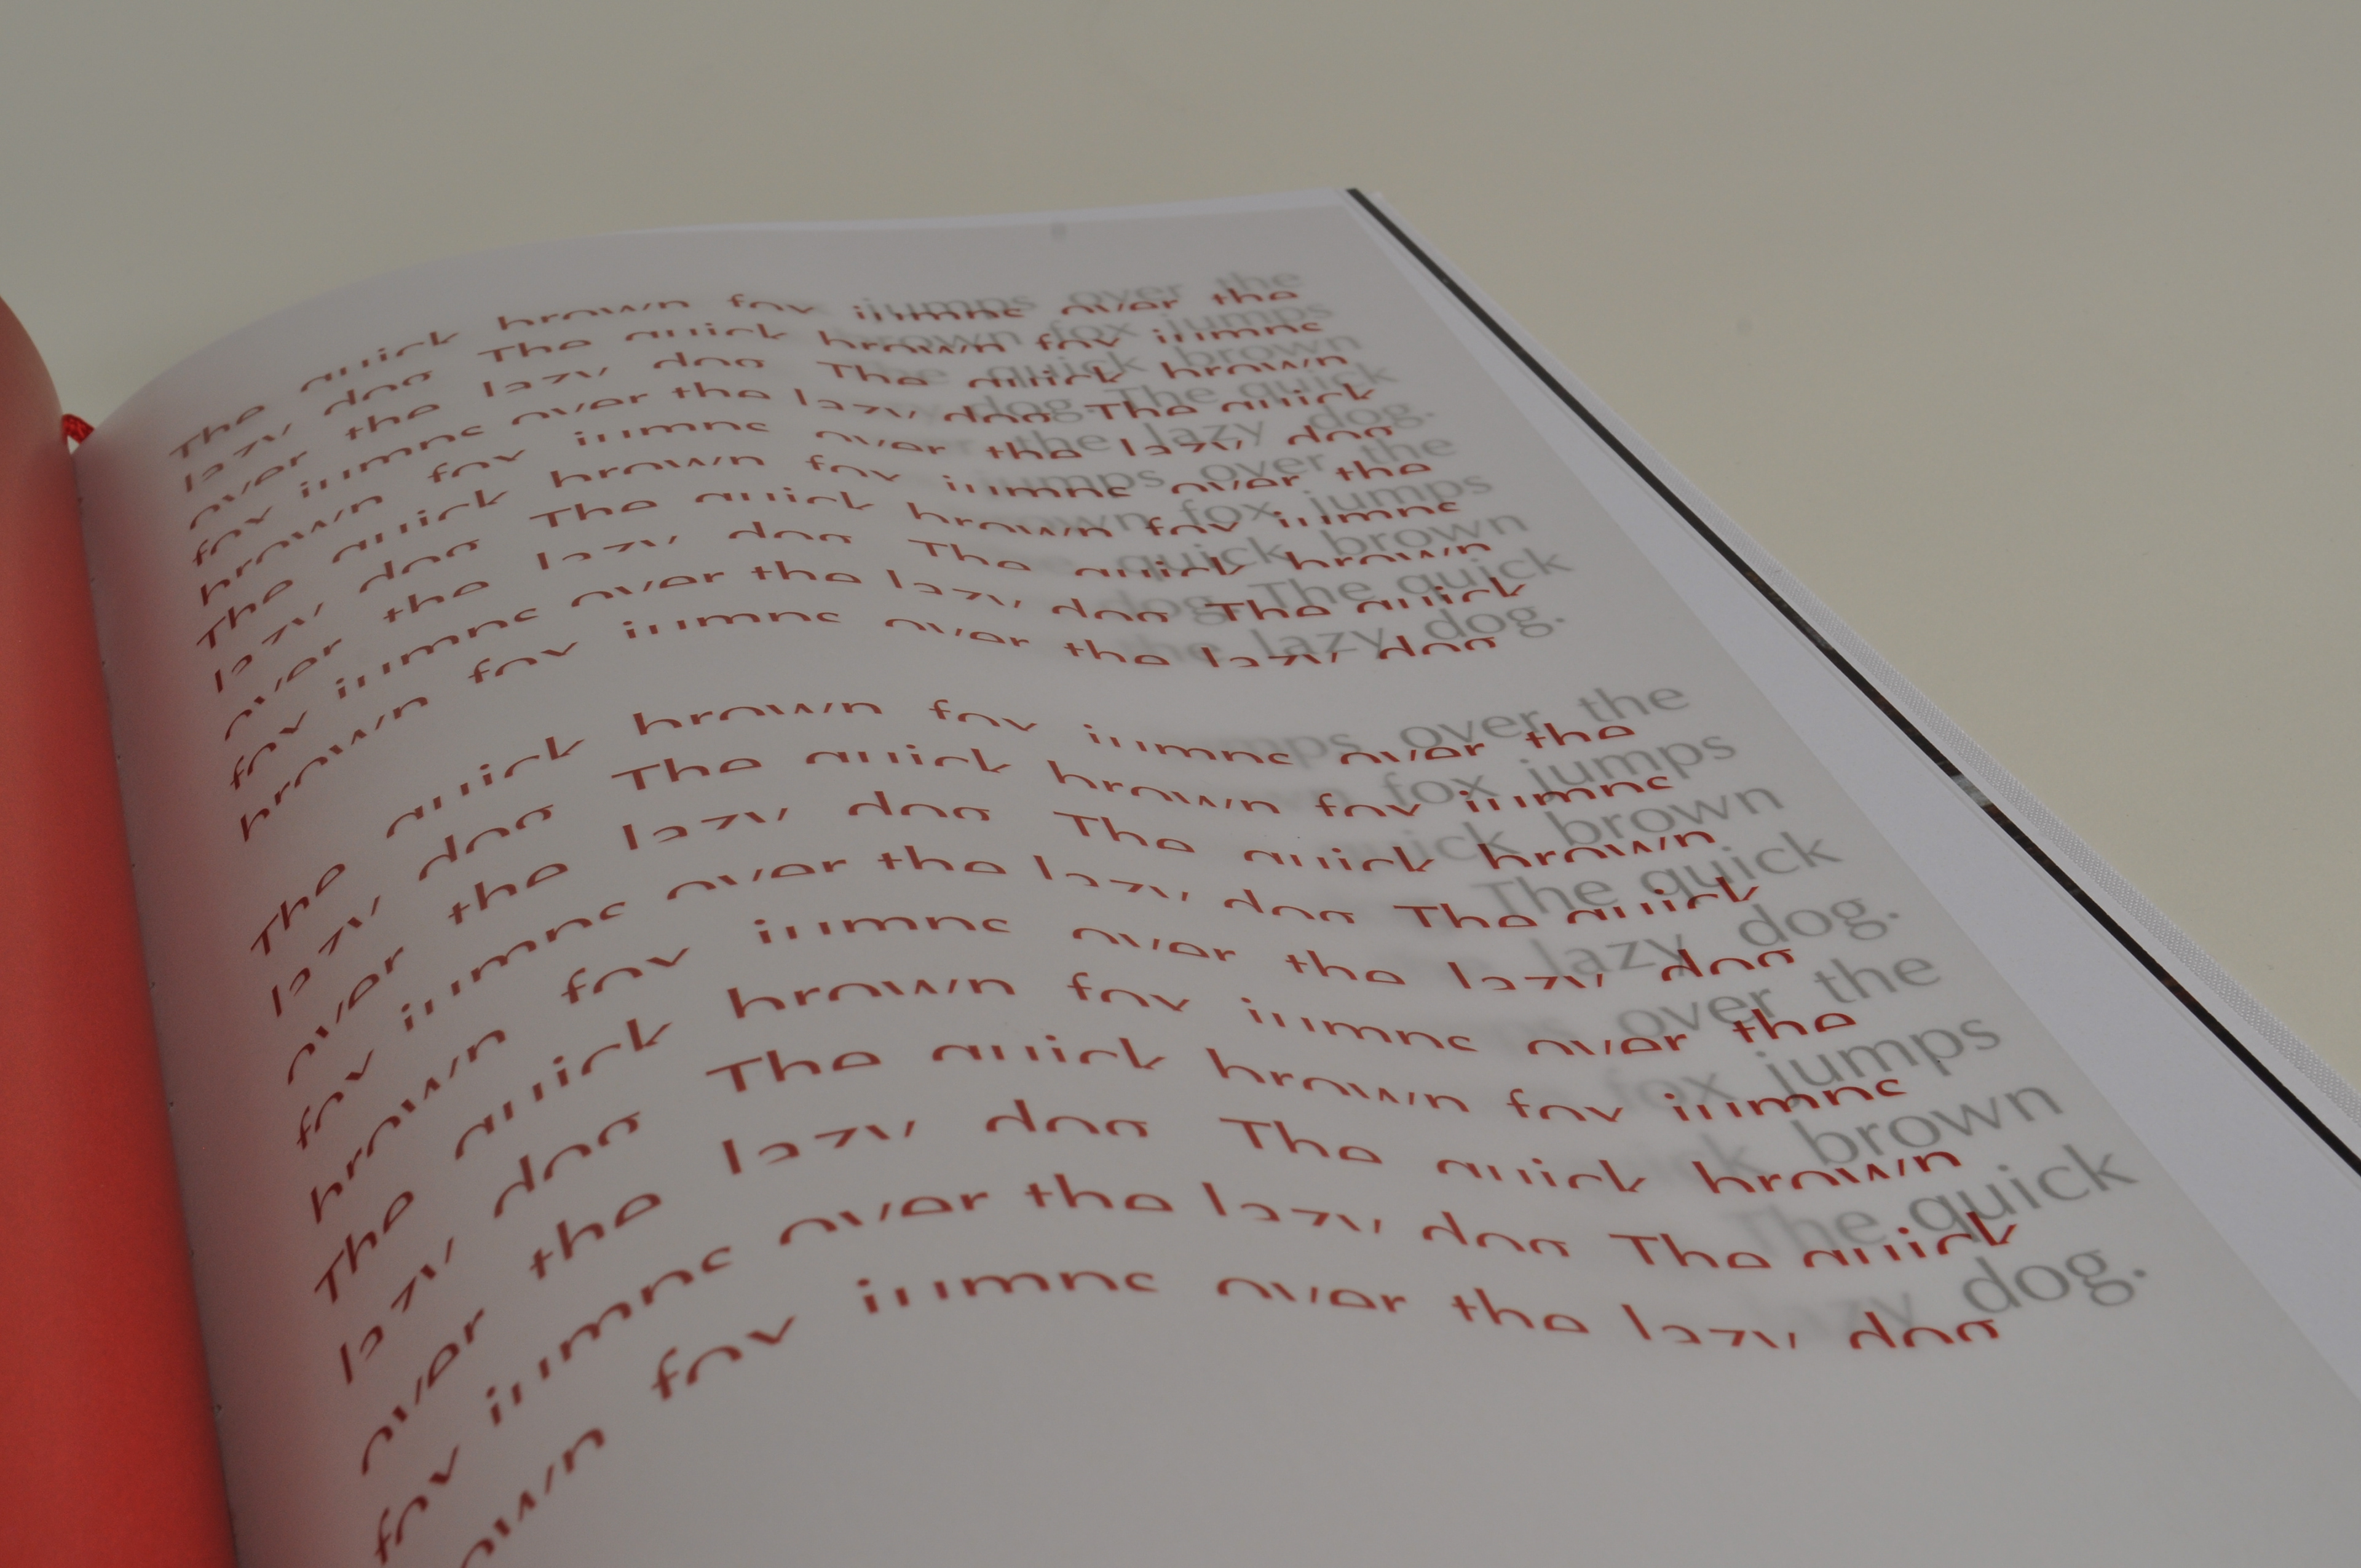 The quick brown fox jumps over the
lazy dog. The quick brown fox jumps
over the lazy dog. The quick brown
fox jumps over the lazy dog. The quick
brown fox jumps over the lazy dog.
The quick brown fox jumps over the
lazy dog. The quick brown fox jumps
over the lazy dog. The quick brown
fox jumps over the lazy dog. The quick
brown fox jumps over the lazy dog.
The quick brown fox jumps over the
lazy dog. The quick brown fox jumps
over the lazy dog. The quick brown
fox jumps over the lazy dog. The quick
brown fox jumps over the lazy dog.
The quick brown fox jumps over the
lazy dog. The quick brown fox jumps
over the lazy dog. The quick brown
fox jumps over the lazy dog. The quick
brown fox jumps over the lazy dog.